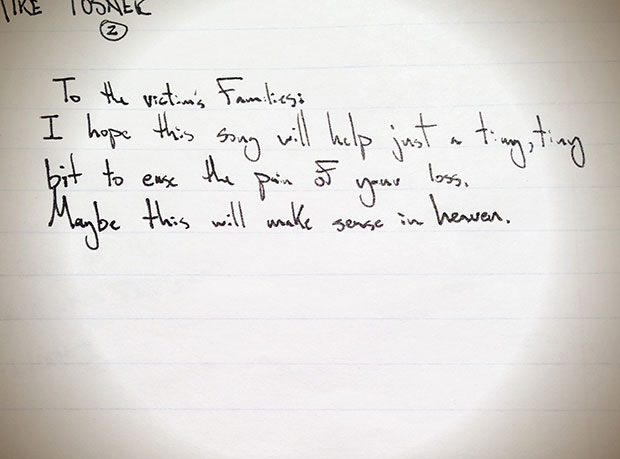 MIKE POSNER
2
To the victim's Families:
I hope this song will help just a tiny, tiny
bit to ease the pain of your loss.
Maybe this will make sense in heaven.